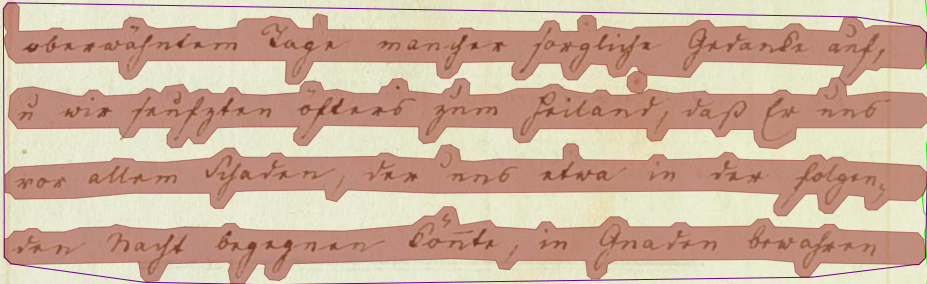 oberwähntem Tage mancher sorgliche Gedanke auf,
u wir seufzten öfters zum Heiland, daß Er uns
vor allem Schaden, der uns etwa in der folgen-
den Nacht begegnen kon̅te, in Gnaden bewahren